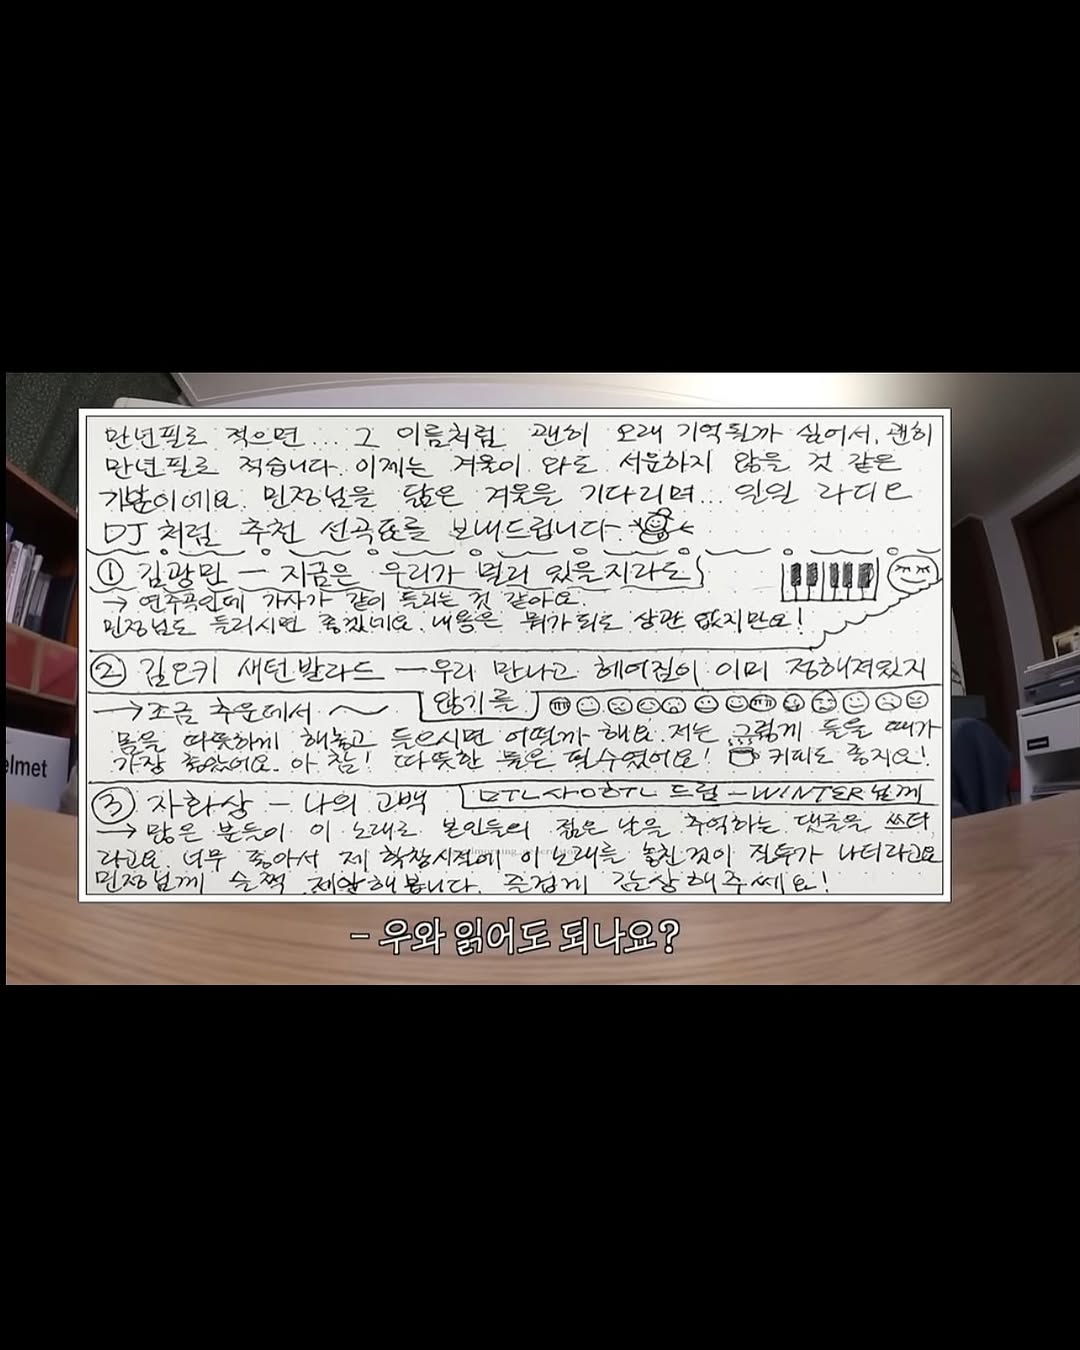 만년필로 적으면... 그 이름처럼 괜히 오래 기억될까 싶어서, 괜히
만년필로 적습니다. 이제는 겨울이 와도 서운하지 않을 것 같은
기분이에요. 민정님을 닮은 겨울을 기다리며... 일일 라디오
DJ처럼 추천 선곡표를 보내드립니다.
① 김광민 - 지금은 우리가 멀리 있을지라도
→ 연주곡인데 가사가 같이 들리는 것 같아요.
민정님도 들리시면 좋겠네요. 내용은 뭐가 되도 상관 없지만요!
② 길은키 새턴발라드 - 우리 만나고 헤어짐이 이미 정해져있지
않기를
→ 조금 추운데서 ~
몸을 따뜻하게 해놓고 들으시면 어떨까 해요. 저는 그렇게 들을 때가
가장 좋았어요. 아 참! 따뜻한 물은 필수였어요! 커피도 좋지요!
③ 자화상 - 나의 고백
드림 - WINTER님께
→ 많은 분들이 이 노래로 본인들의 젊은 날을 추억하는 댓글을 쓰더
라고요. 너무 좋아서 제 학창시절에 이 노래를 놓친 것이 질투가 나더라고요
민정님께 슬쩍 제안해봅니다. 즐겁게 감상해주쎄요!
elmet
- 우와 읽어도 되나요?